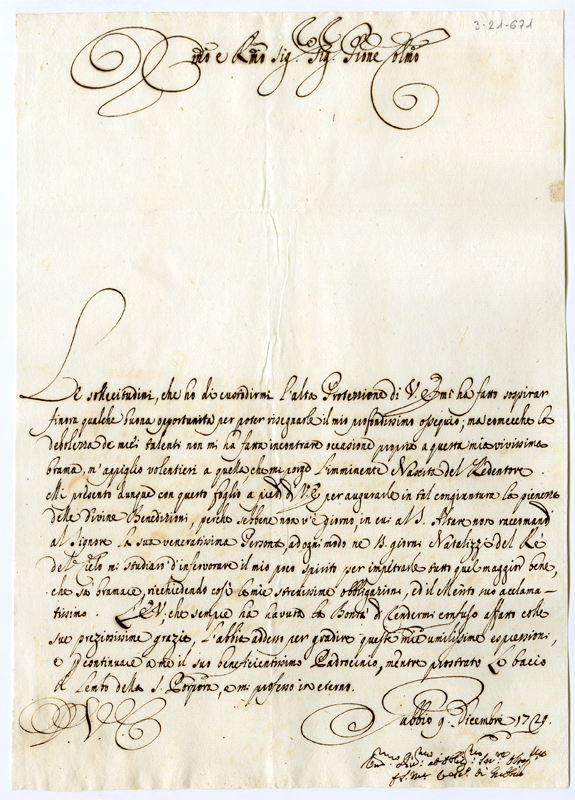 3-21-671
Emo e Rmo Sig. Sig. Prone Colmo
Le sollecitudini, che ho di custodirmi l'alta Protezzione di V. Em. ha fatto sospirar
finora qualche buona opportunità per poter risegnarle il mio profondissimo ossequio; ma comecche la
debolezza de miei talenti non mi ha fatta incontrare occasione propria a questa mia vivissima
brama, m'appiglio volentieri a quella, che mi porge l'imminente Nascita del Redentore.
Mi presento dunque con questo foglio a piedi di V. E. per augurarle in tal congiuntura la pienezza
delle Divine Benedizioni, perche sebbene non v'è giorno, in cui al S. Altare non raccomandi
al Signore la sua veneratissima Persona, ad ogni modo ne SS. giorni Natalizzi del Rè
del Cielo mi studiarò d'infervorare il mio poco spirito per impetrarle tutto quel maggior bene,
che sà bramare, richiedendo così le mie strettissime obbligazioni, ed il Merito suo acclama-
tissimo. L'E. V., che sempre ha havuta la Bontà di rendermi confuso affatto colle
sue preziosissime grazie, l'abbia adesso per gradire queste mie umilissime espressioni,
e continuare a me il suo beneficentissimo Padrocinio, mentre prostrato Le bacio
il Lembo della S. Porpora, e mi professo in eterno.
Gubbio 9. Dicembre 1729.
di Gubbio